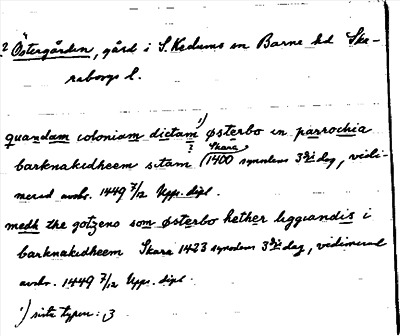 ? Östergården, gård i S. Kedums sn Barne hd Ska-
raborgs l.
quandam coloniam dictam ¹) østerbo in parrochia
barknakedheem sitam (1400 Skara synodens 3dje dag, vidi-
merad avskr. 1449 7/12 Upps. dipl.
medh the gotzeno som østerbo hether liggiandis i
barknakedheem Skara 1423 synodens 3dje dag, vidimerad
avskr. 1449 7/12 Upps. dipl.
¹) sista typen: 3